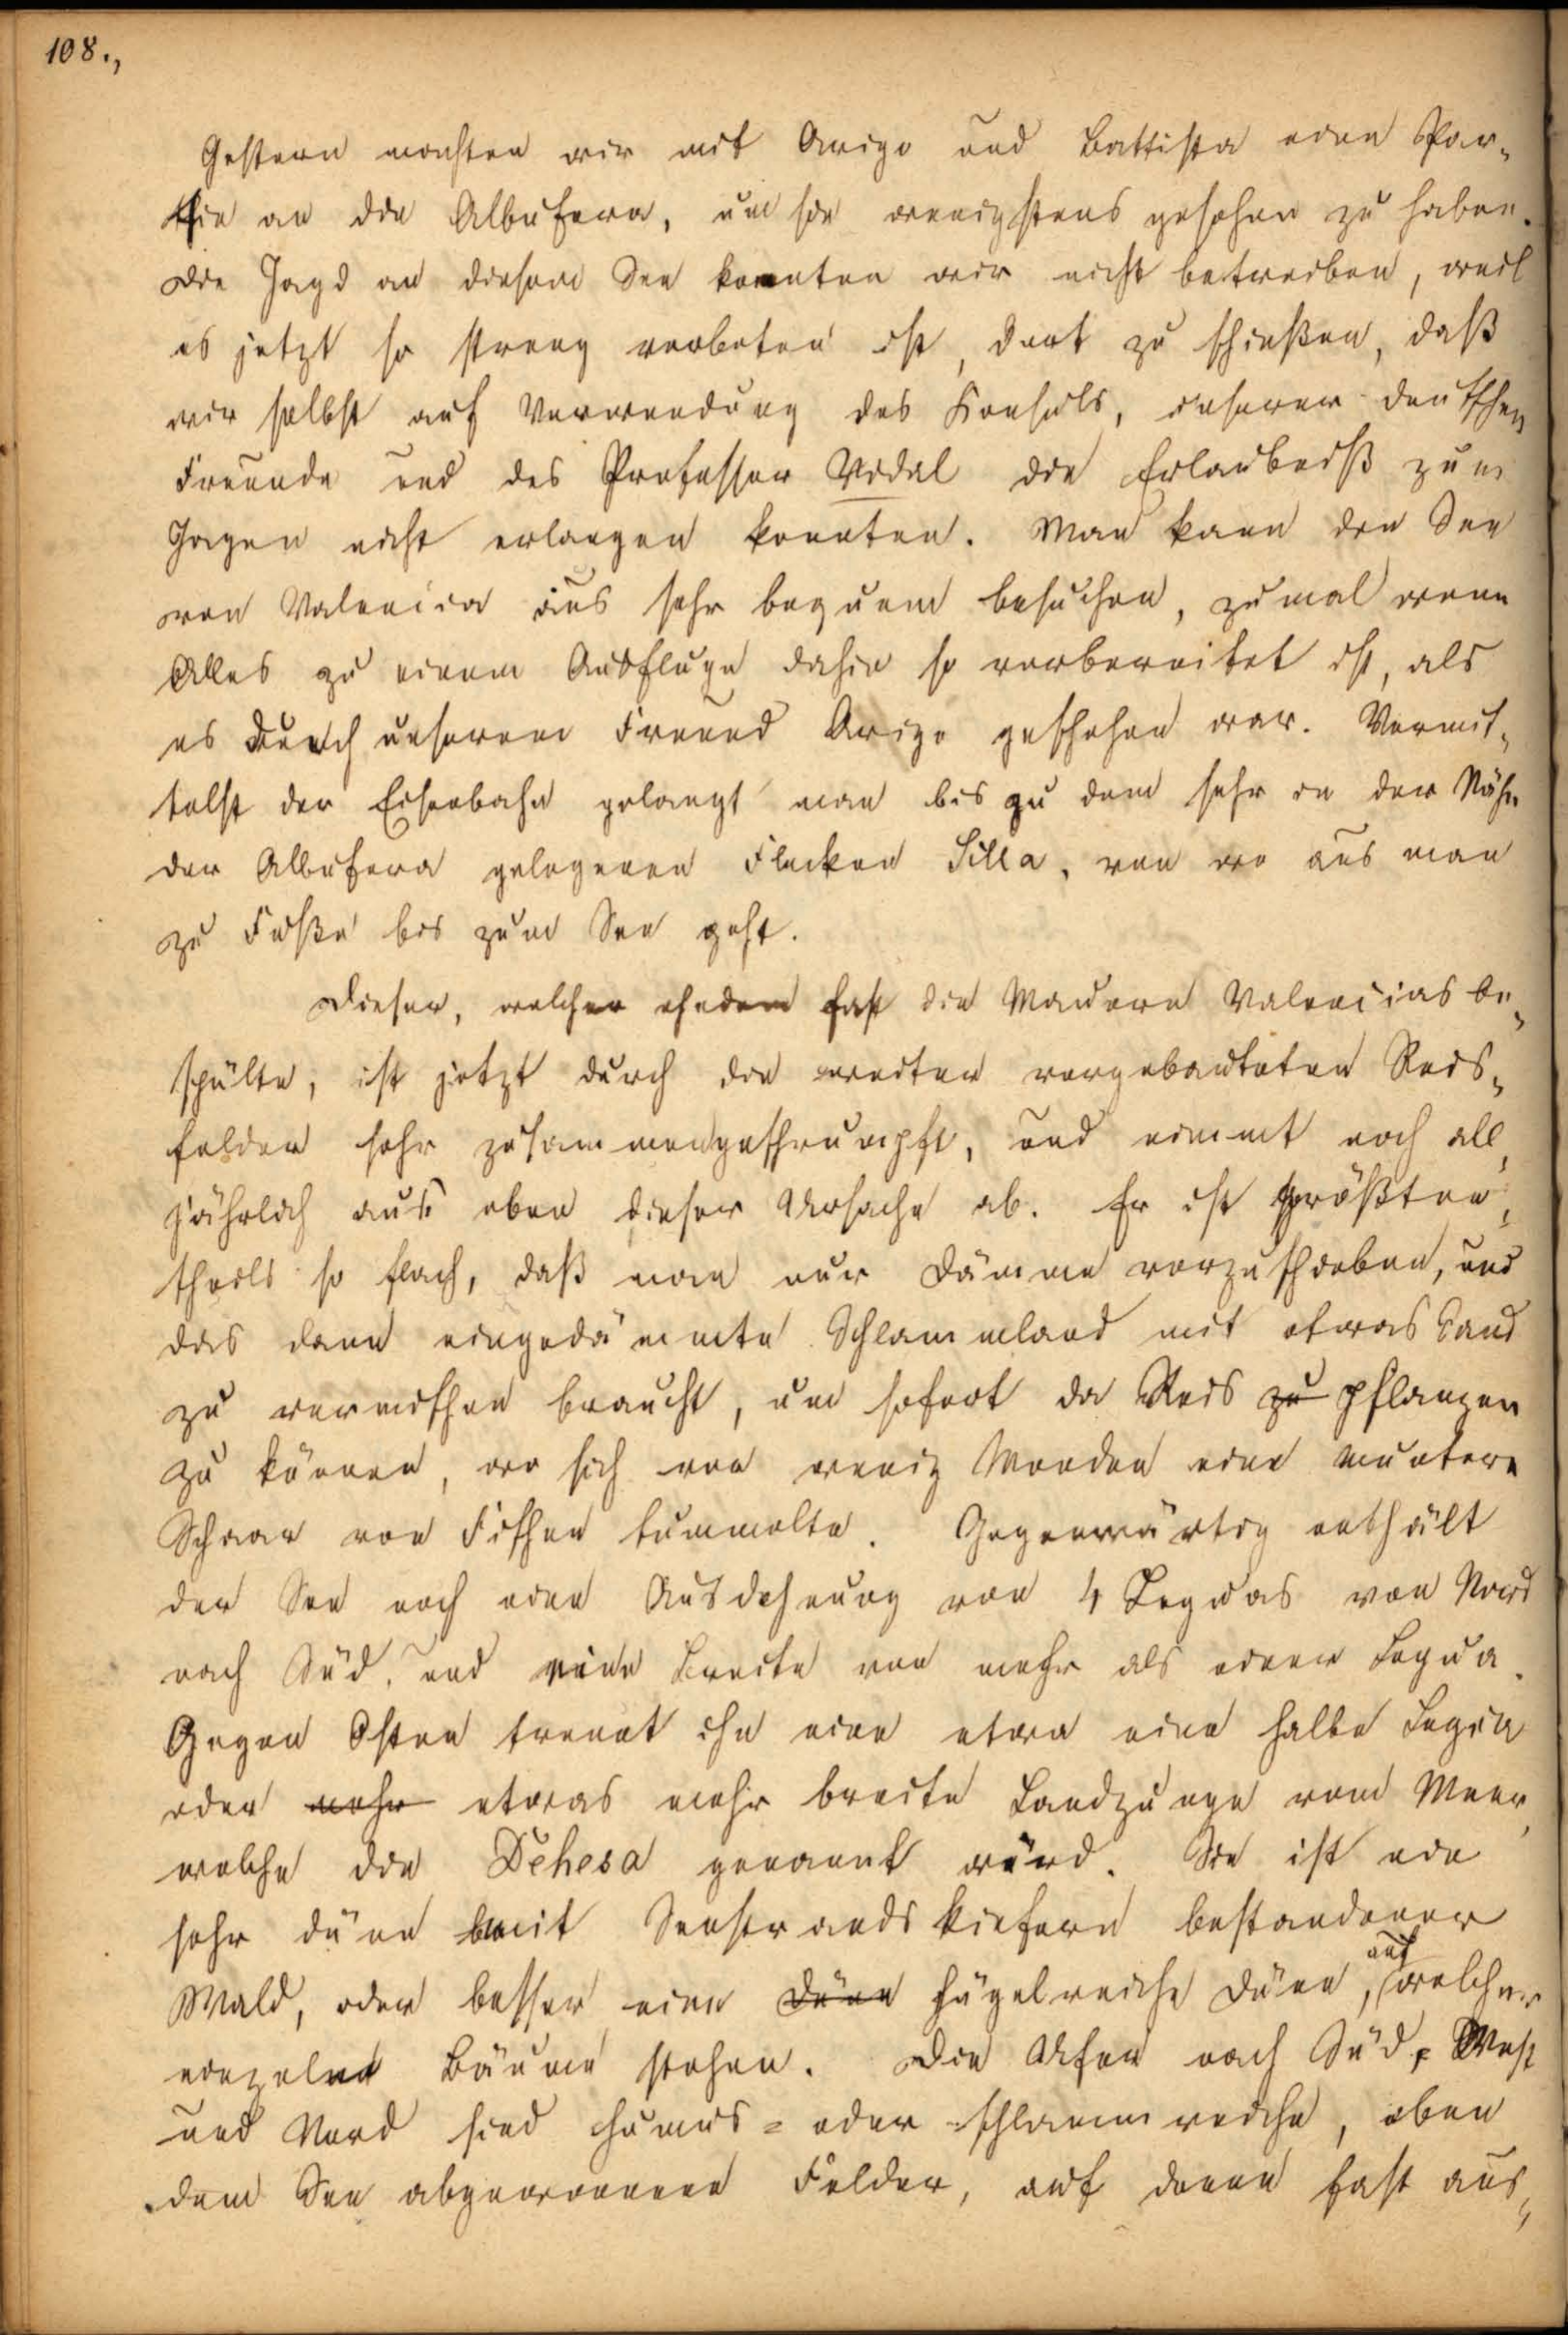 108.,
Gestern machten wir mit Arigo und Battista eine Par-
thie an die Albufera, um sie wenigstens gesehen zu haben.
Die Jagd an diesem See konnten wir nicht betreiben, weil
es jetzt so streng verboten ist, dort zu schießen, daß
wir selbst auf Verwendung des Konsuls, unserer deutschen
Freunde und des Professor Vidal die Erlaubniß zum
Jagen nicht erlangen konnten. Man kann den See
von Valencia aus sehr bequem besuchen, zumal wenn
Alles zu einem Ausfluge dahin so vorbereitet ist, als
es durch unseren Freund Arigo geschehen war. Vermit-
telst der Eisenbahn gelangt man bis zu dem sehr in der Nähe
der Albufera gelegenen Flecken Silla, von wo aus man
zu Fuße bis zum See geht.
Dieser, welcher ehedem fast die Mauern Valencias be-
spülte, ist jetzt durch die weiter vorgebauteten Reis-
felder sehr zusammengeschrumpft, und nimmt noch all-
jährlich aus eben dieser Ursache ab. Er ist größten-
theils so flach, daß man nur Dämme vorzuschieben, und
das dann eingedämmte Schlammland mit etwas Sand
zu vermischen braucht, um sofort da Reis zu pflanzen
zu können, wo sich vor wenig Monden eine muntere
Schaar von Fischen tummelte. Gegenwärtig enthält
der See noch eine Ausdehnung von 4 Leguas von Nord
nach Süd, und eine Breite von mehr als einer Legua.
Gegen Osten trennt ihn eine etwa eine halbe Legua
oder mehr etwas mehr breite Landzunge vom Meer,
welche die Dehesa genannt wird. Sie ist ein
sehr dünn mit Seestrandskiefern bestandener
Wald, oder besser eine Düne hügelreiche Düne, auf welcher
einzelne Bäume stehen. Die Ufer nach Süd, West
und Nord sind humus= oder schlammreiche, eben
dem See abgewonnene Felder, auf denen fast aus-